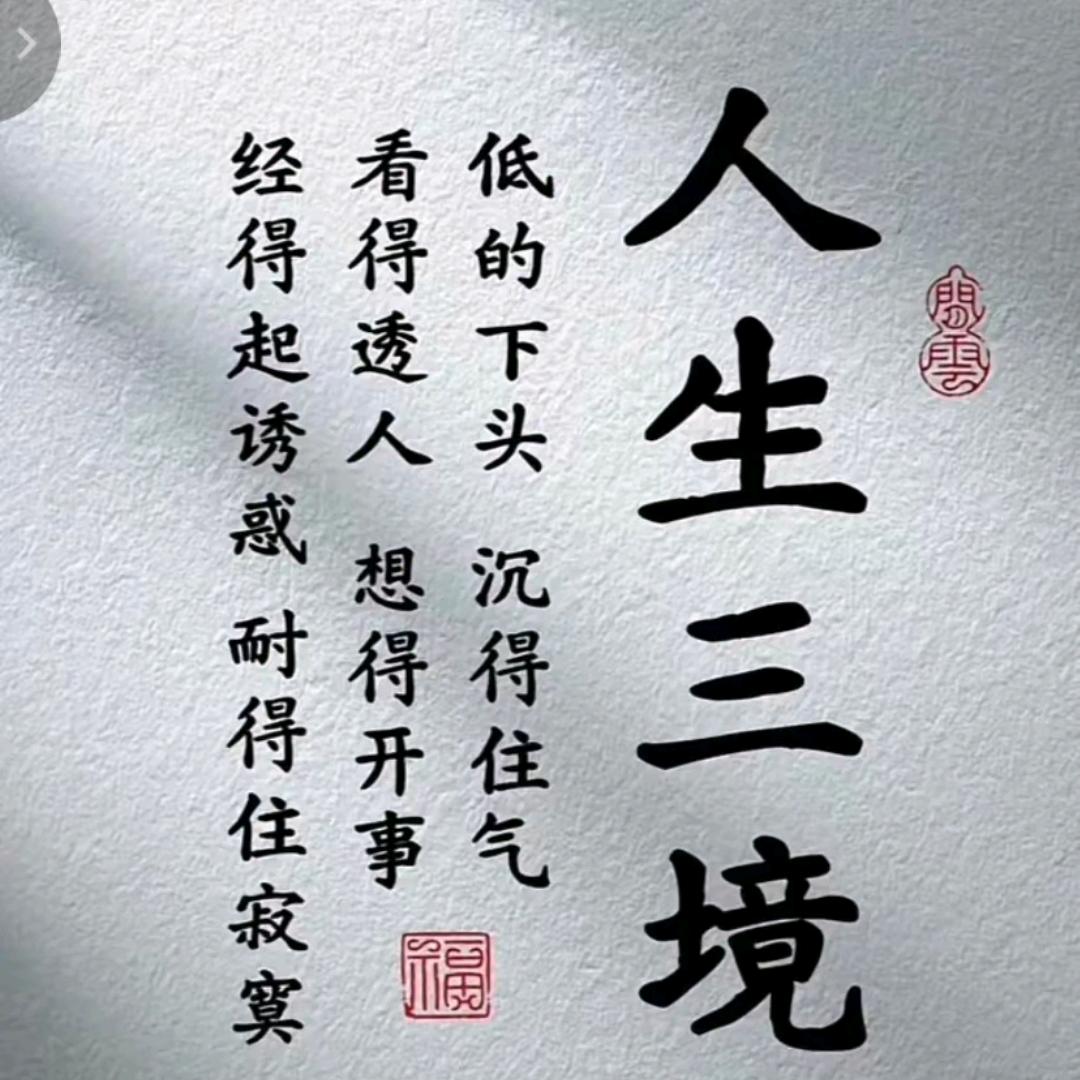 人生三境
低的下头 沉得住气
看得透人 想得开事
经得起诱惑 耐得住寂寞
閒雲
福